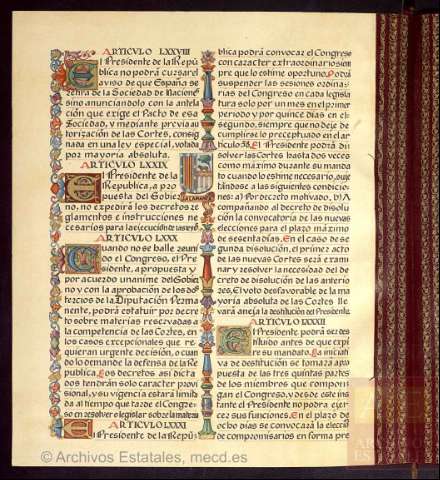 ARTICULO LXXVIII
El Presidente de la Repú
blica no podrá cursar el
aviso de que España se
retira de la Sociedad de Naciones
sino anunciándolo con la antela
ción que exige el Pacto de esa
Sociedad, y mediante previa au
torización de las Cortes, consig
nada en una ley especial, votada
por mayoría absoluta.
ARTICULO LXXIX
El Presidente de la
Republica, a pro
puesta del Gobier
no, expedirá los decretos re
glamentos e instrucciones ne
cesarios para la ejecución de las leyes
ARTICULO LXXX
Cuando no se halle reuni
do el Congreso, el Pre
sidente, a propuesta y
por acuerdo unánime del Gobier
no y con la aprobación de los dos
tercios de la Diputación Perma
nente, podrá estatuir por decre
to sobre materias reservadas a
la competencia de las Cortes, en
los casos excepcionales que re
quieran urgente decisión, o cuan
do lo demande la defensa de la Re
publica. Los decretos asi dicta
dos tendrán solo carácter provi
sional, y su vigencia estará limita
da al tiempo que tarde el Congre
so en resolver o legislar sobre la materia
ARTICULO LXXXI
El Presidente de la Repú
blica podrá convocar el Congreso
con carácter extraordinario siem
pre que lo estime oportuno. Podrá
suspender las sesiones ordina
rias del Congreso en cada legisla
tura solo por un mes en el primer
periodo y por quince dias en el
segundo, siempre que no deje de
cumplirse lo preceptuado en el ar
ticulo 58. El Presidente podrá di
solver las Cortes hasta dos veces
como máximo durante su manda
to cuando lo estime necesario, suje
tándose a las siguientes condicio
nes: a) Por decreto motivado, b) A
compañando al decreto de disolu
ción la convocatoria de las nuevas
elecciones para el plazo máximo
de sesenta dias. En el caso de se
gunda disolución, el primer acto
de las nuevas Cortes será exami
nar y resolver la necesidad del de
creto de disolución de las anterio
res. El voto desfavorable de la ma
yoría absoluta de las Cortes lle
vará aneja la destitución del Presidente.
ARTICULO LXXXII
El Presidente podrá ser des
tituido antes de que expi
re su mandato. La iniciati
va de destitución se tomará a pro
puesta de las tres quintas partes
de los miembros que compon
gan el Congreso, y desde este ins
tante el Presidente no podrá ejer
cer sus funciones. En el plazo de
ocho dias se convocará la elección
de compromisarios en forma pre
© Archivos Estatales, mecd.es